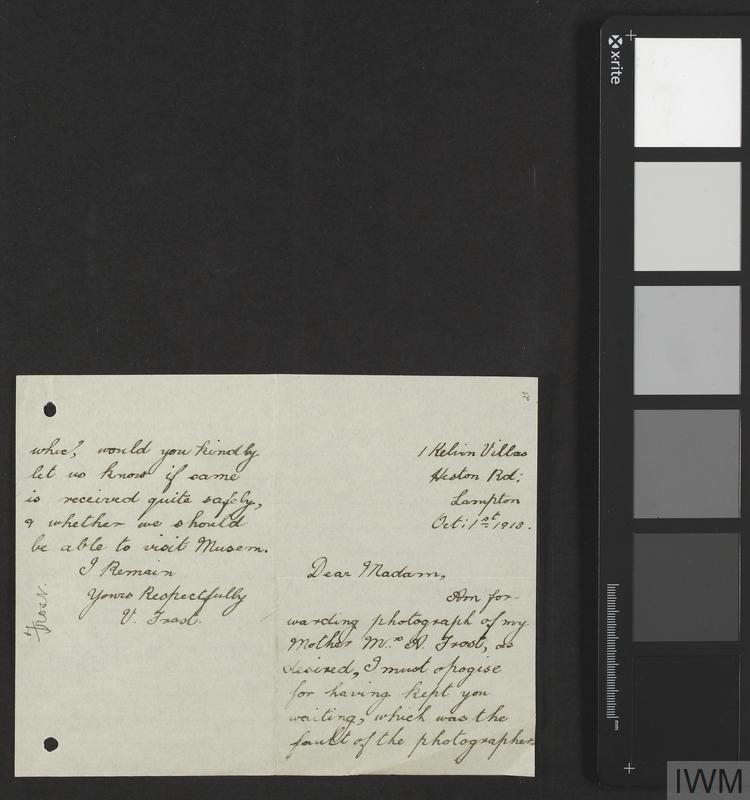 1 Kelvin Villas
Heston Rd;
Lampton
Oct: 1st 1918.
Dear Madam,
Am for-
warding photograph of my
Mother Mrs A. Frost, as
desired, I must opogise
for having kept you
waiting, which was the
fault of the photographer
would you kindly
let us know if same
is received quite safely,
& whether we should
be able to visit Musem.
I Remain
Yours Respectfully
V. Frost.
Frost.
x-rite
mm
IWM